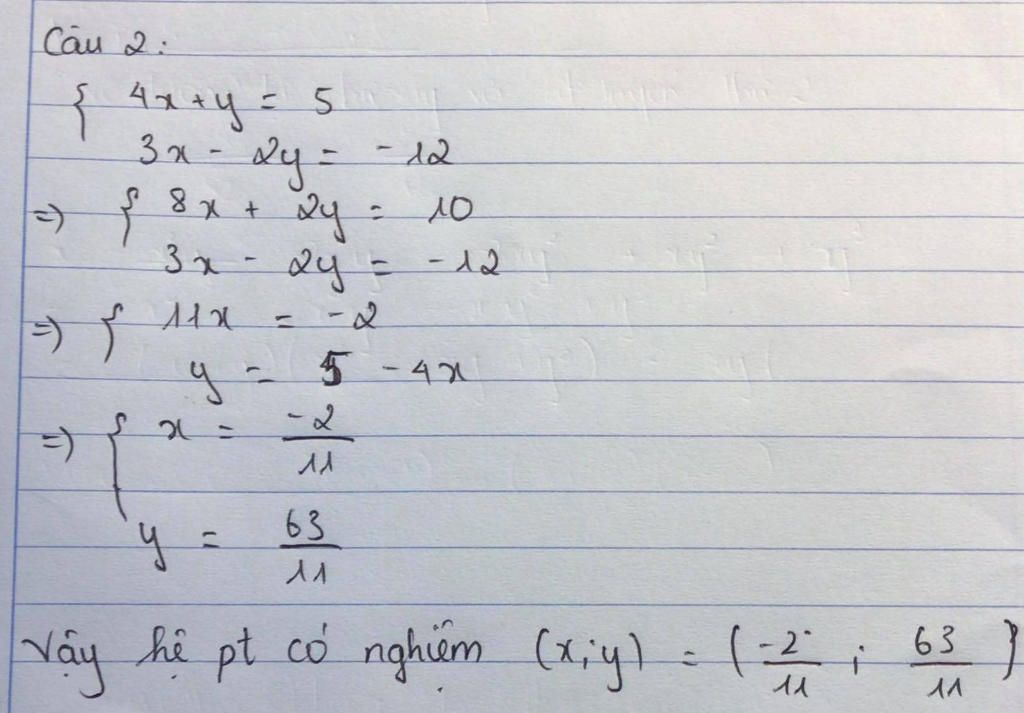 Câu 2:
{ 4x + y = 5
3x - 2y = -12
=> { 8x + 2y = 10
3x - 2y = -12
=> { 11x = -2
y = 5 - 4x
=> { x = -2/11
y = 63/11
Vậy hệ pt có nghiệm (x;y) = (-2/11 ; 63/11)